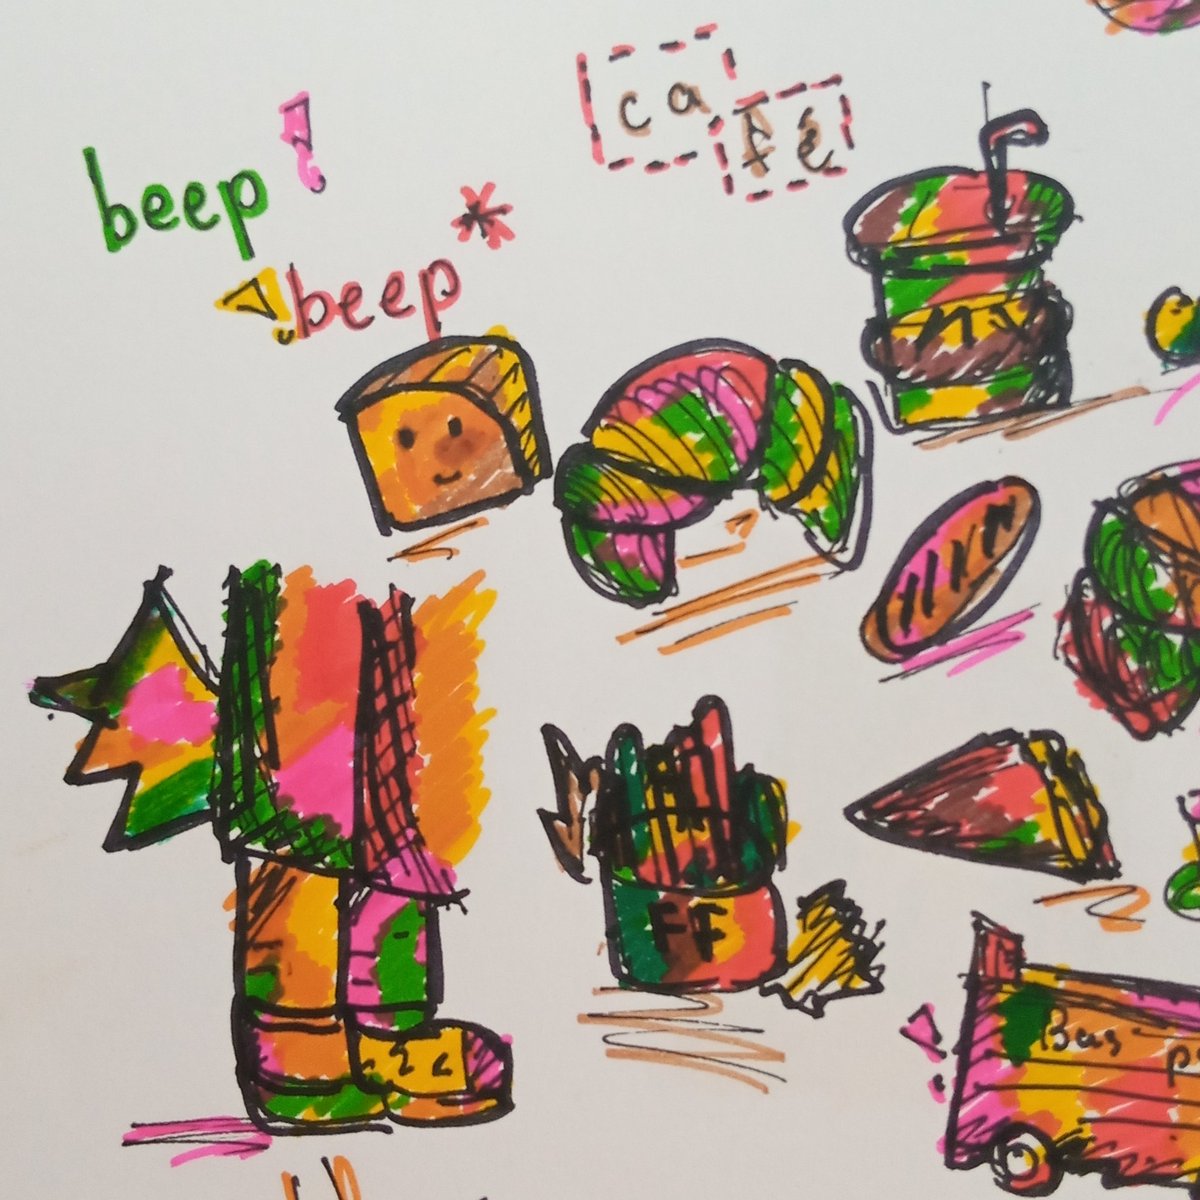 ca
fé
beep!
!beep*
FF
Bus